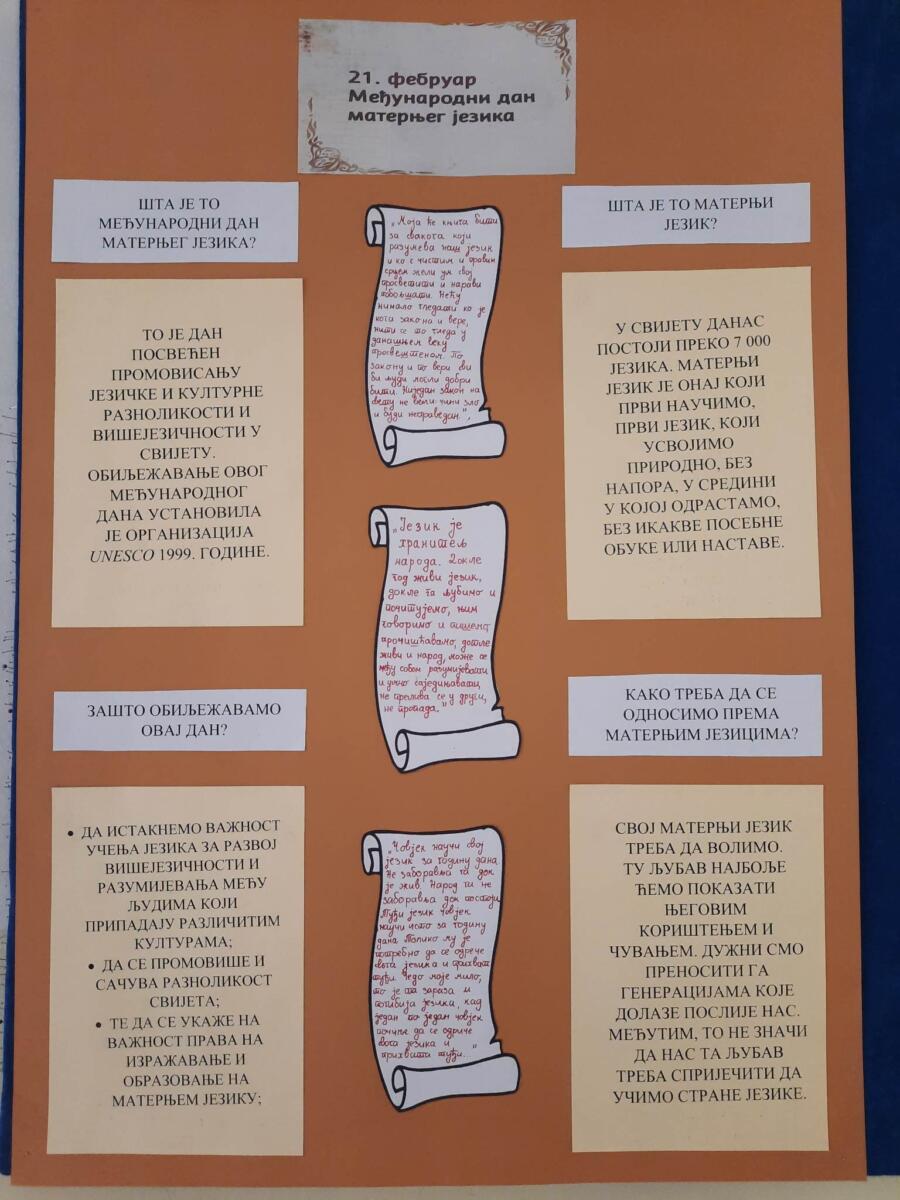 21. фебруар
Међународни дан
матерњег језика
ШТА ЈЕ ТО
МЕЂУНАРОДНИ ДАН
МАТЕРЊЕГ ЈЕЗИКА?
ТО ЈЕ ДАН
ПОСВЕЋЕН
ПРОМОВИСАЊУ
ЈЕЗИЧКЕ И КУЛТУРНЕ
РАЗНОЛИКОСТИ И
ВИШЕЈЕЗИЧНОСТИ У
СВИЈЕТУ.
ОБИЉЕЖАВАЊЕ ОВОГ
МЕЂУНАРОДНОГ
ДАНА УСТАНОВИЛА
ЈЕ ОРГАНИЗАЦИЈА
UNESCO 1999. ГОДИНЕ.
ЗАШТО ОБИЉЕЖАВАМО
ОВАЈ ДАН?
• ДА ИСТАКНЕМО ВАЖНОСТ
УЧЕЊА ЈЕЗИКА ЗА РАЗВОЈ
ВИШЕЈЕЗИЧНОСТИ И
РАЗУМИЈЕВАЊА МЕЂУ
ЉУДИМА КОЈИ
ПРИПАДАЈУ РАЗЛИЧИТИМ
КУЛТУРАМА;
• ДА СЕ ПРОМОВИШЕ И
САЧУВА РАЗНОЛИКОСТ
СВИЈЕТА;
• ТЕ ДА СЕ УКАЖЕ НА
ВАЖНОСТ ПРАВА НА
ИЗРАЖАВАЊЕ И
ОБРАЗОВАЊЕ НА
МАТЕРЊЕМ ЈЕЗИКУ;
„Моја ће књига бити
за свакога који
разумева наш језик
и ко с чистим и правим
срцем жели ум свој
просветити и нарави
побољшати. Нећу
нимало гледати ко је
кога закона и вере,
нити се то гледа у
данашњем веку
просвештеном. По
закону и по вери сви
би људи могли добри
бити. Ниједан закон на
свету не вели: чини зло
и буди неправедан."
„Језик је
хранитељ
народа. Докле
год живи језик,
докле га љубимо и
почитујемо, њим
говоримо и пишемо,
прочишћавамо, дотле
живи и народ, може се
међу собом разумијевати
и умно саједињавати,
не прелива се у други,
не пропада."
„Човјек научи свој
језик за годину дана.
Не заборавља га док
је жив. Народ ти не
заборавља док постоји.
Туђи језик човјек
научи исто за годину
дана. Толико му је
потребно да се одрече
свога језика и прихвати
туђи. Чедо моје мило,
то је та зараза и
погибија језика, кад
један по један човјек
почиње да се одриче
свога језика и
прихвати туђи..."
ШТА ЈЕ ТО МАТЕРЊИ
ЈЕЗИК?
У СВИЈЕТУ ДАНАС
ПОСТОЈИ ПРЕКО 7 000
ЈЕЗИКА. МАТЕРЊИ
ЈЕЗИК ЈЕ ОНАЈ КОЈИ
ПРВИ НАУЧИМО,
ПРВИ ЈЕЗИК, КОЈИ
УСВОЈИМО
ПРИРОДНО, БЕЗ
НАПОРА, У СРЕДИНИ
У КОЈОЈ ОДРАСТАМО,
БЕЗ ИКАКВЕ ПОСЕБНЕ
ОБУКЕ ИЛИ НАСТАВЕ.
КАКО ТРЕБА ДА СЕ
ОДНОСИМО ПРЕМА
МАТЕРЊИМ ЈЕЗИЦИМА?
СВОЈ МАТЕРЊИ ЈЕЗИК
ТРЕБА ДА ВОЛИМО.
ТУ ЉУБАВ НАЈБОЉЕ
ЋЕМО ПОКАЗАТИ
ЊЕГОВИМ
КОРИШТЕЊЕМ И
ЧУВАЊЕМ. ДУЖНИ СМО
ПРЕНОСИТИ ГА
ГЕНЕРАЦИЈАМА КОЈЕ
ДОЛАЗЕ ПОСЛИЈЕ НАС.
МЕЂУТИМ, ТО НЕ ЗНАЧИ
ДА НАС ТА ЉУБАВ
ТРЕБА СПРИЈЕЧИТИ ДА
УЧИМО СТРАНЕ ЈЕЗИКЕ.